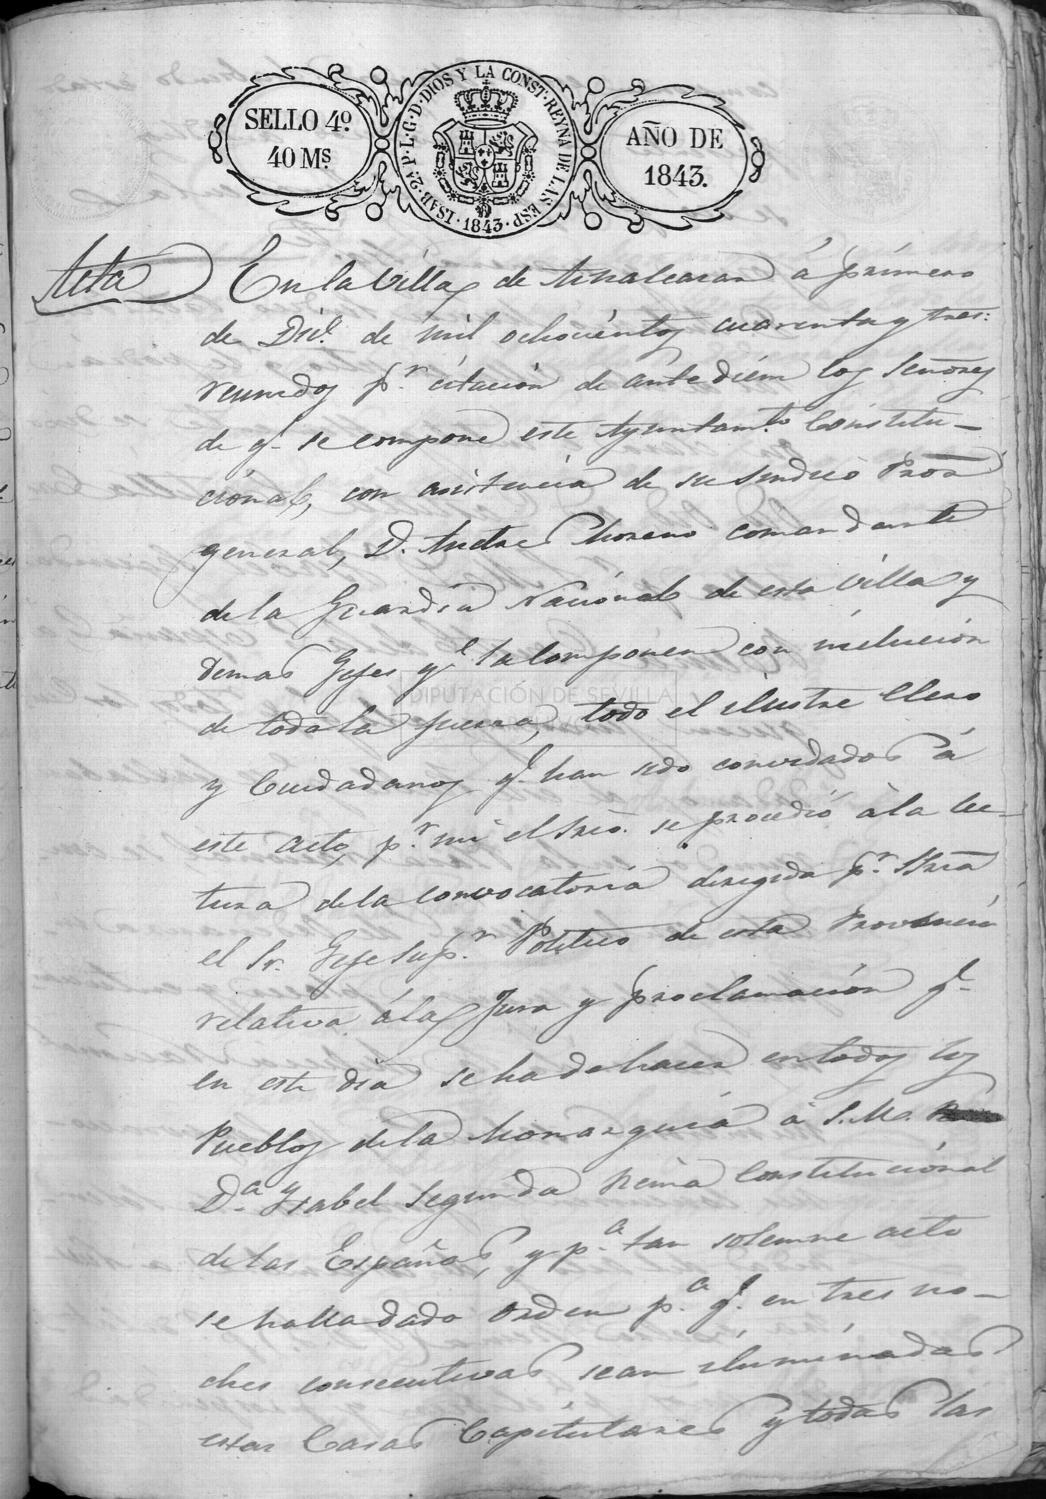 SELLO 4º.
40 Ms.
ISAB. 2A. P. L. G. D. DIOS Y LA CONST. REYNA DE LAS ESP.
1843
AÑO DE
1843.
Acta
En la Villa de Aznalcazar à primero
de Dice. de mil ochocientos cuarenta y tres:
reunidos pr. citacion de antediem los Señores
de qe. se compone este Ayuntamto. Constitu-
cional, con asistencia de su Sindico Procr.
general, D. Andres Moreno comandante
de la Guardia Nacional de esta Villa y
demas Gefes qe. la componen con inclucion
de toda la fuerza, todo el ilustre Clero
y Ciudadanos qe. han sido convidados á
este acto, pr. mi el Srio. se procedió à la lec-
tura de la convocatoria dirigida pr.
el Sr. Gefe Supr. Politico de esta Provincia
relativa á la Jura y proclamación qe.
en este dia se ha de hacer en todos los
Pueblos de la Monarquia á S. M.
Da. Ysabel Segunda Reina Constitucional
de las Españas, y pa. tan solemne acto
se halla dado orden pa. qe. en tres no-
ches consecutivas sean iluminadas
estas Casas Capitulares y todas las
DIPUTACIÓN DE SEVILLA